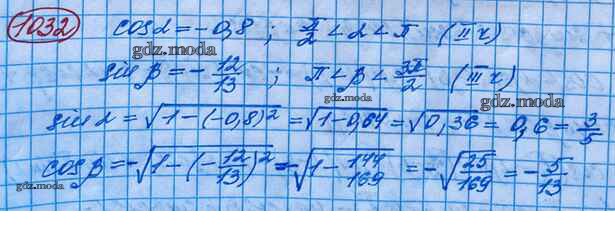 1032 cos α = -0,8 ; π/2 < α < π (II ч)
gdz.moda
sin β = - 12/13 ; π < β < 3π/2 (III ч)
gdz.moda gdz.moda
sin α = √1-(-0,8)² = √1-0,64 = √0,36 = 0,6 = 3/5
gdz.moda
cos β = -√1-(-12/13)² = -√1-144/169 = -√25/169 = -5/13
gdz.moda
gdz.moda